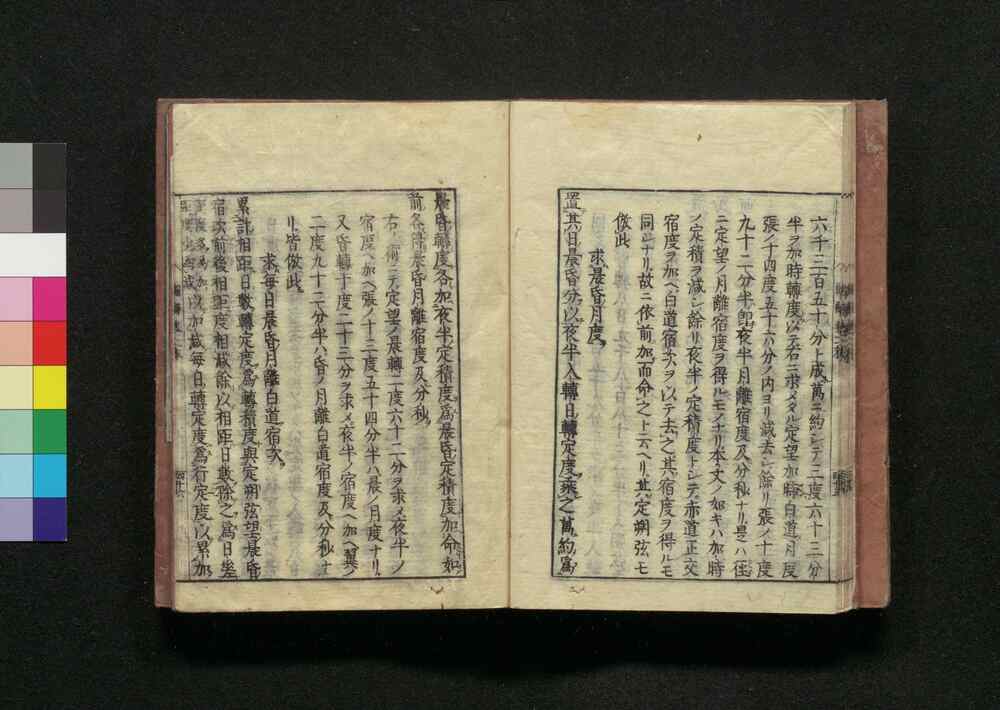 六千三百五十分上成萬ニ約シテ三度六十三分
半ヲ加時轉度以テ右ニ求メタル定望加時白道ノ月度
張ノ十四度五十六分ノ内ヨリ減去シ餘リ張ノ十度
九十二分半即夜半月離宿度及分秒ナリ是ハ径
ニ定望ノ月離宿度ヲ得ルモノナリ本文ノ如キハ加時
ノ定積ヲ減シ餘リ夜半ノ定積度トシテ赤道正交
宿度ヲ加ヘ白道宿次ヲ以テ去之其宿度ヲ得ルモ
同シナリ故ニ依前加而命之上云ヘリ其定朔弦モ
倣此
求晨昏月度
置其日晨昏分以夜半入轉日轉定度乘之萬約為
晨昏轉度各加夜半定積度為晨昏定積度加命如
前各得晨昏月離宿度及分秒
右ノ術ニテ定望ノ晨轉二度六十二分ヲ求メ夜半ノ
宿度ヘ加ヘ張ノ十三度五十四分半ハ晨ノ月度ナリ
又昏轉十度二十三分ヲ求メ夜半ノ宿度ヘ加ヘ翼ノ
二度九十二分半ハ昏ノ月離白道宿度及分秒ナ
リ皆倣此
求每日晨昏月離白道宿次
累計相距日數轉定度為轉積度與定朔弦望晨昏
宿次前後相距度相減餘以相距日數除之為日差
距度多為加
距度少為減
以加減每日轉定度為行定度以累加